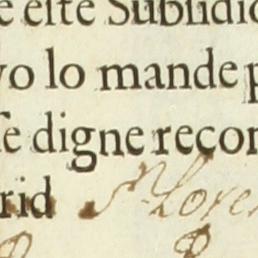 e este Subsidio
vo lo mande p
se digne recon
rid S.n Loren